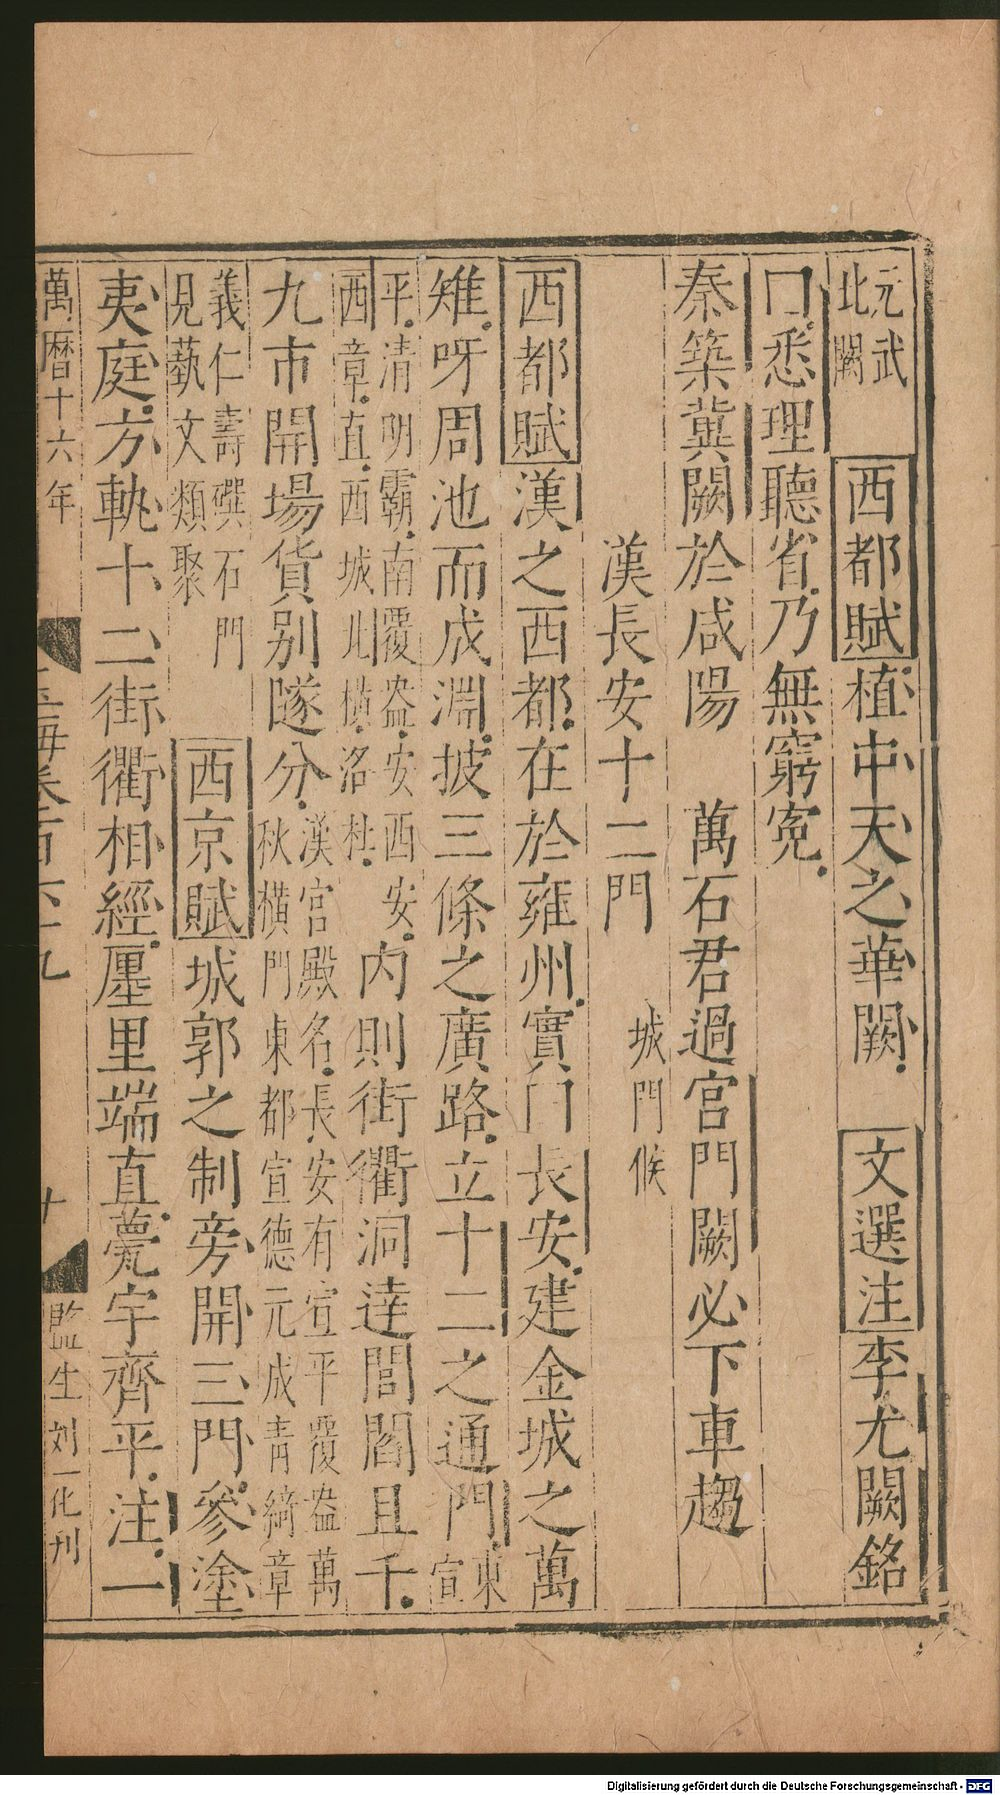 元武
北闕
西都賦植中天之華闕　文選注李尤闕銘
悉理聽省乃無窮寃
秦築冀闕於咸陽　萬石君過宮門闕必下車趨
漢長安十二門　城門候
西都賦漢之西都在於雍州實曰長安建金城之萬
雉呀周池而成淵披三條之廣路立十二之通門
東
宣
平清明霸南覆盎安西安
西章直西城北橫洛杜
內則街衢洞達閭閻且千
九市開場貨別隧分
漢宮殿名長安有宣平覆盎萬
秋橫門東都宣德元成靑綺章
義仁壽磥石門
見藝文類聚
西京賦城郭之制旁開三門參塗
夷庭方軌十二街衢相經廛里端直甍宇齊平注一
萬曆十六年
玉海卷百六十九
十
監生刘一化刊
Digitalisierung gefördert durch die Deutsche Forschungsgemeinschaft - DFG